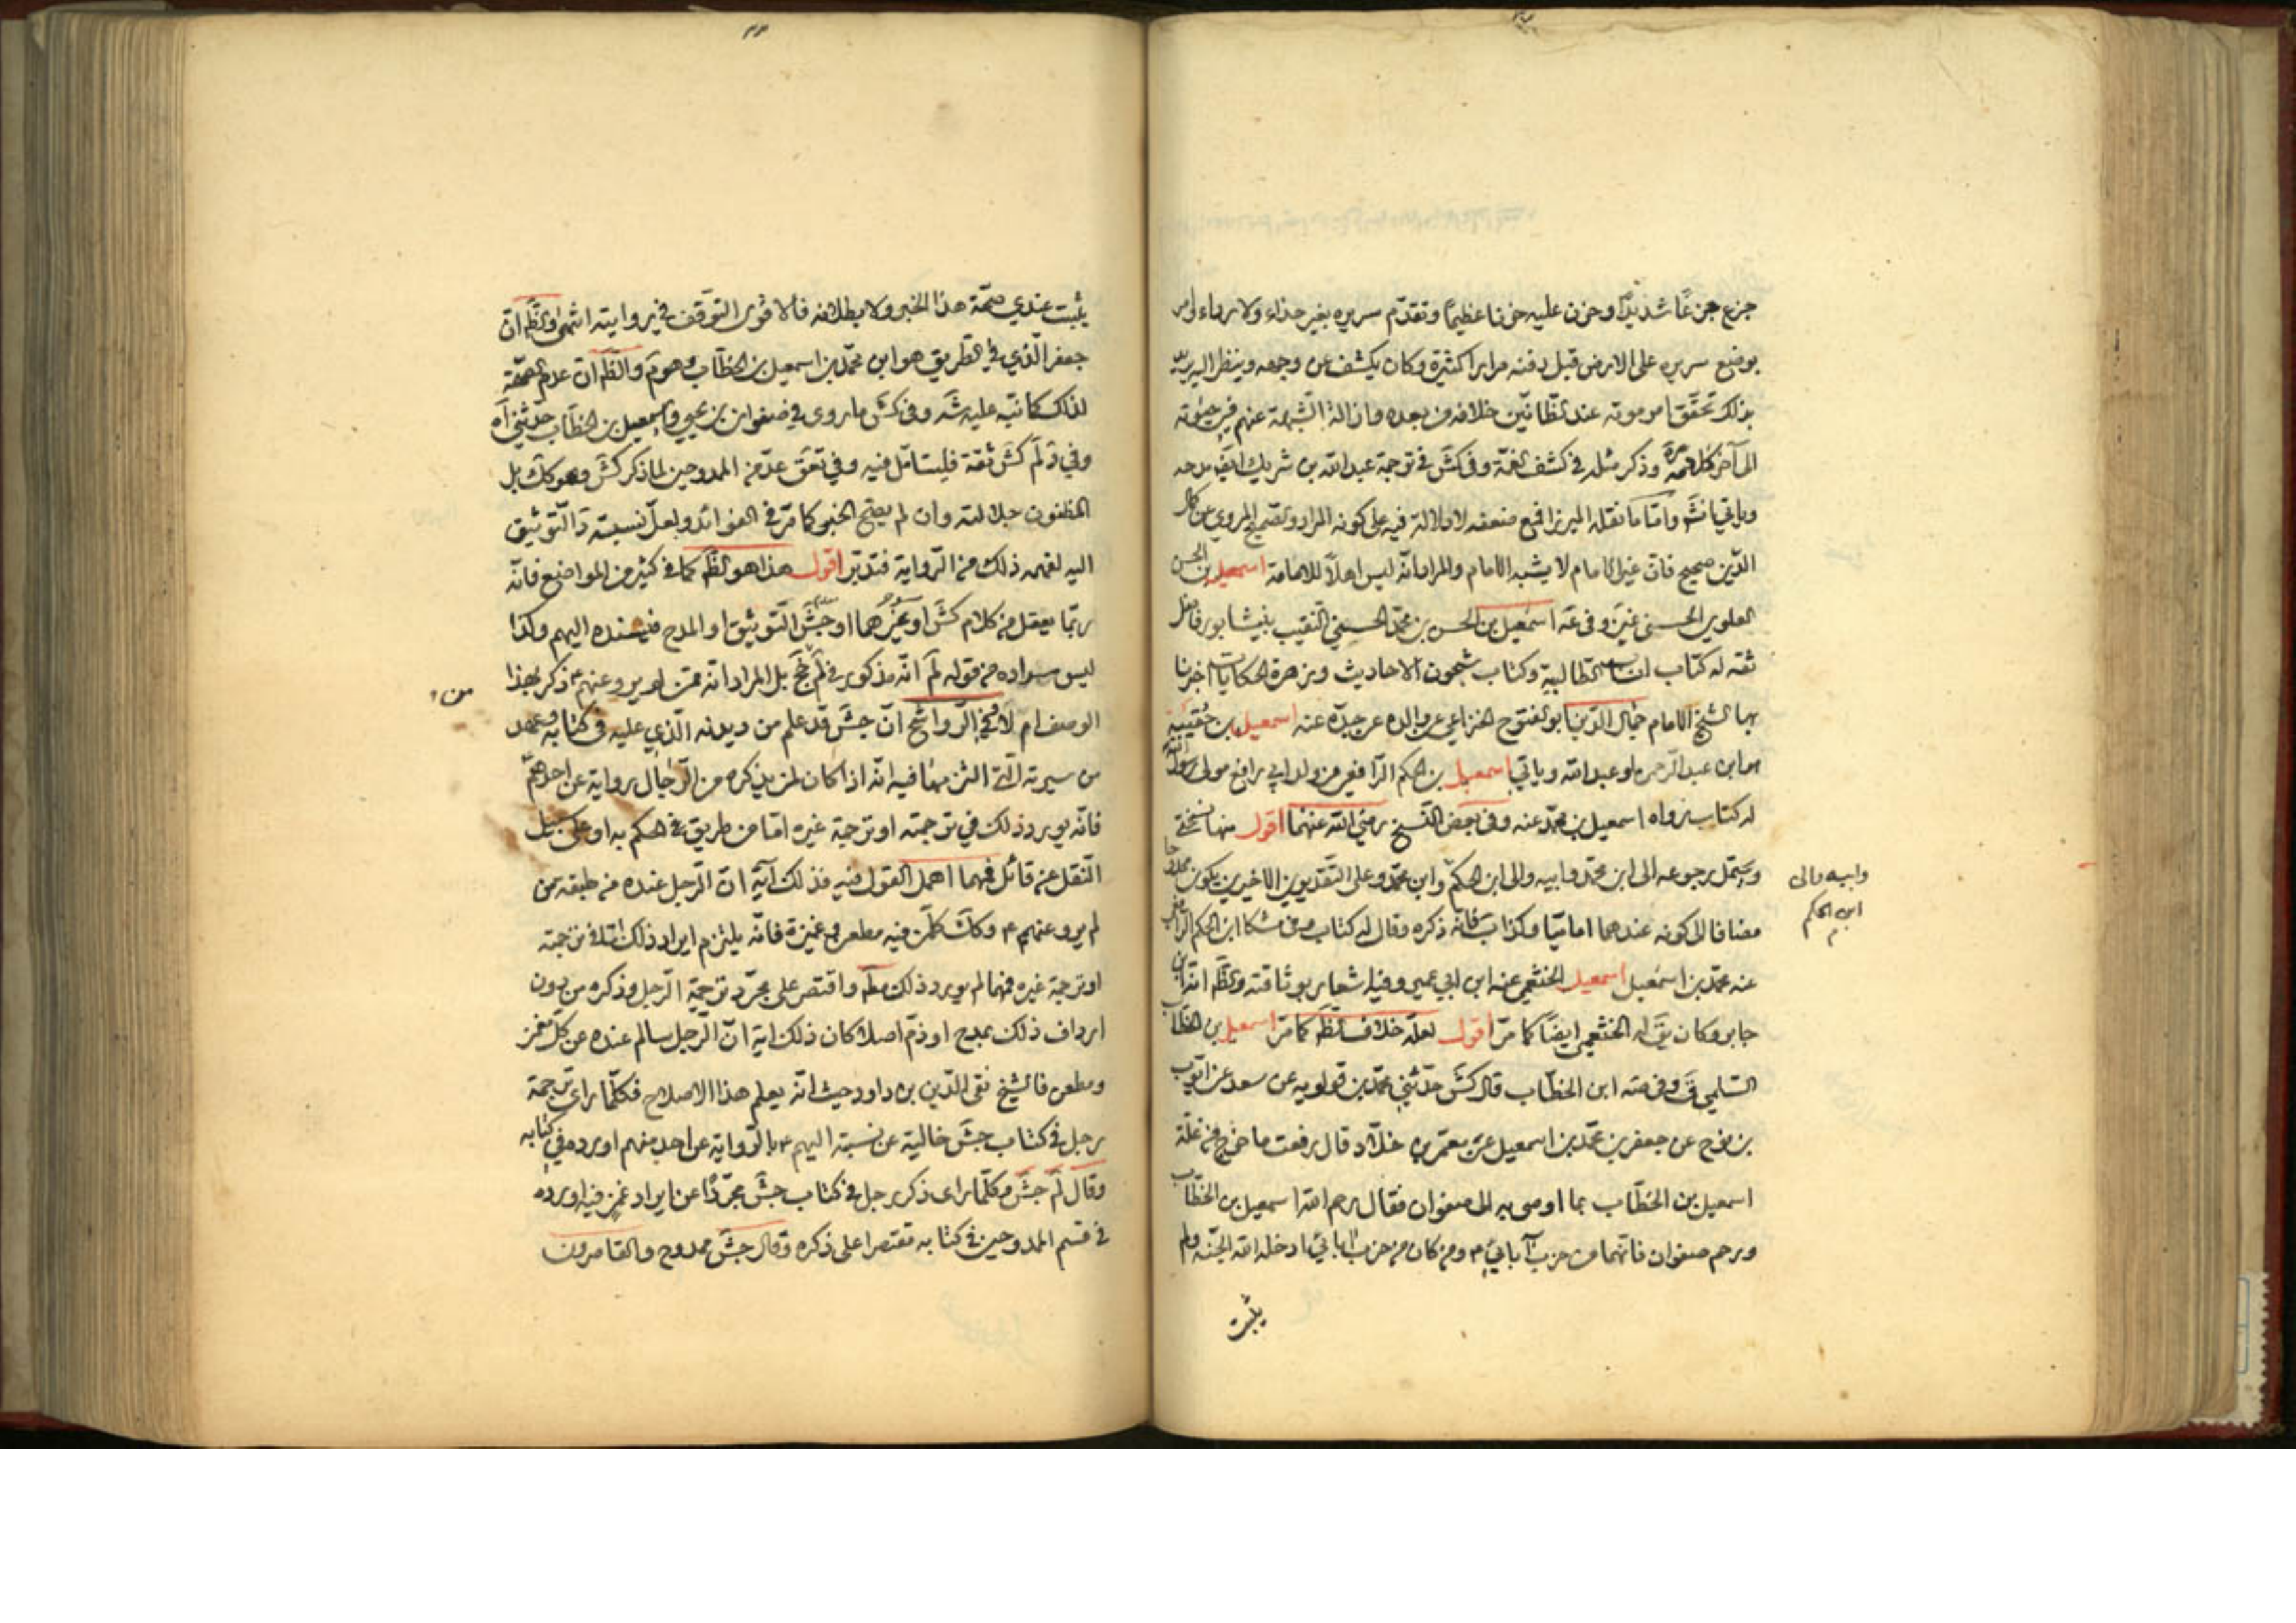 جزع جزعا شديدا وحزن عليه حزنا عظيما وتقدّم سريره بغير حذاء ولا رداء وامر
بوضع سريره على الارض قبل دفنه مرارا كثيرة وكان يكشف عن وجهه وينظر اليه يريد
بذلك تحقّق امر موته عند الظانّين خلافه من بعده وازالة الشبهة عنهم في حيوته
الى آخر كلامه وذكر مثله في كشف الغمّة وفي كش في ترجمة عبد الله بن شريك ايض مدحه
وياتي انش وامّا ما نقله الميرزا فمع ضعفه لا دلالة فيه على كونه المراد والصحيح المروي من كمال
الدّين صحيح فانّ غير الامام لا يشبه الامام والمراد انّه ليس اهلا للامامة اسمعيل بن الحسن
العلوي الحسني غين وفي عه اسمعيل بن الحسن بن محمّد الحسيني النّقيب بنيشابور فاضل
ثقه له كتاب انساب الطالبية وكتاب شجون الاحاديث وزهرة الحكايات اخبرنا
بها الشيخ الامام جمال الدّين ابو الفتوح الخزاعي عن والده عن جدّه عنه اسمعيل بن حقيبة
هو ابن عبد الرحمن او عبد الله وياتي اسمعيل بن الحكم الرّافعي من ولد ابي رافع مولى رسول الله
له كتاب رواه اسمعيل بن محمّد عنه وفي بعض النّسخ رضي الله عنهما اقول منها نسختي
ويحتمل رجوعه الى ابن محمّد وابيه والى ابن الحكم وابن محمّد وعلى التّقديرين الاخيرين يكون جليلا
وابيه والى
ابن الحكم
مضافا الى كونه عندهما اماميّا وكذا ب فانّه ذكره وقال له كتاب وفي مشكا ابن الحكم الرّافعي
عنه محمّد بن اسمعيل اسمعيل الخثعمي عنه ابن ابي عمير وفيه اشعار بوثاقته والظّ انّه ابن
جابر وكان يق له الخثعمي ايضا كما مرّ اقول لعلّه خلاف الظّ كما مرّ اسمعيل بن الخطّاب
السّلمي ق وفي صه ابن الخطّاب قال كش حدّثني محمّد بن قولويه عن سعد عن ايّوب
بن نوح عن جعفر بن محمّد بن اسمعيل عن معمّر بن خلّاد قال رفعت ما خرج من غلّة
اسمعيل بن الخطّاب بما اوصى به الى صفوان فقال رحم الله اسمعيل بن الخطّاب
ورحم صفوان فانّهما من حزب آبائي ومن كان من حزب آبائي ادخله الله الجنّة ولم
يثبت
يثبت عندي صحّة هذا الخبر ولا بطلانه فالاقوى التّوقّف في روايته انتهى والظّ انّ
جعفر الّذي في الطريق هو ابن محمّد بن اسمعيل بن الخطّاب وهو م والظّ انّ عدم الصحّة
لذلك كما نبّه عليه شه وفي كش ما روى في صفوان بن يحيى واسمعيل بن الخطّاب حدّثني آه
وفي د لم كش ثقة فليتامّل فيه وفي تعق عدّ من الممدوحين لما ذكر كش وهو كك بل
المظنون جلالته وان لم يصحّ الخبر كما مرّ في الفوائد ولعلّ نسبته د التّوثيق
اليه لفهمه ذلك من الرّواية فتدبّر اقول هذا هو الظّ كما في كثير من المواضع فانّه
ربّما يعقل من كلام كش او جش او غيرهما التّوثيق او المدح فيسنده اليهم وكذا
ليس مراده من قوله لم انّه مذكور في لم جخ بل المراد انّه ممّن لم يرو عنهم ذكر بهذا
الوصف ام لا وفي الرّواشح انّ جش قد علم من ديدنه الّذي عليه في كتابه وعهد
من سيرته الّتي التزمها فيه انّه اذا كان لمن يذكره من الرّجال رواية عن احدهم
فانّه يورد ذلك في ترجمته او ترجمة غيره امّا من طريق الحكم به او على سبيل
النّقل عن قائل فمهما اهمل القول فيه فذلك آية انّ الرّجل عنده من طبقة من
لم يرو عنهم وكك كلّ من فيه مطعن وغميزة فانّه يلتزم ايراد ذلك امّا في ترجمته
او ترجمة غيره فمهما لم يورد ذلك مط واقتصر على مجرّد ترجمة الرّجل وذكره من دون
ارداف ذلك بمدح او ذمّ اصلا كان ذلك اية انّ الرّجل سالم عنده عن كلّ مغمز
ومطعن فالشيخ تقي الدّين بن داود حيث انّه يعلم هذا الاصلاح فكلّما راى ترجمة
رجل في كتاب جش خالية عن نسبته اليهم بالرّواية عن احد منهم اورده في كتابه
وقال لم جش وكلّما راى ذكر رجل في كتاب جش مجرّدا عن ايراد غمز فيه اورده
في قسم الممدوحين في كتابه مقتصرا على ذكره وقال جش ممدوح والقاصرون